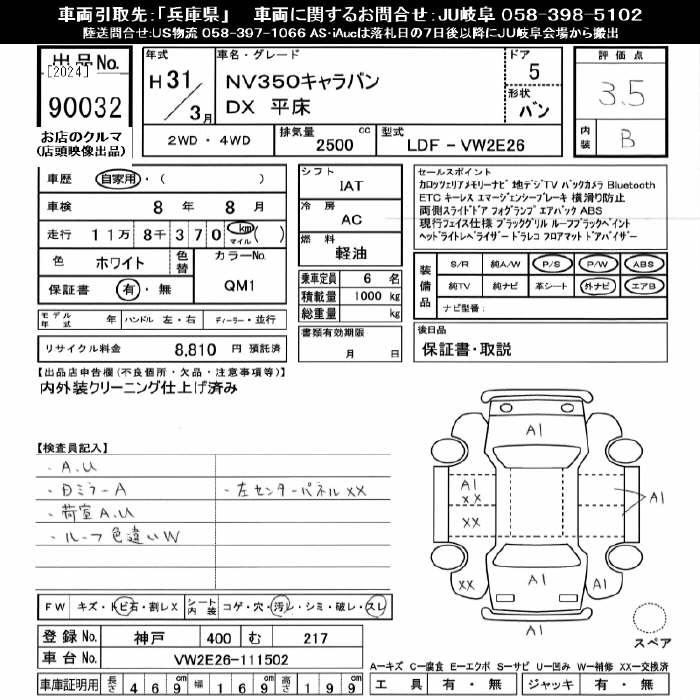 車両引取先:「兵庫県」 車両に関するお問合せ:JU岐阜 058-398-5102
陸送問合せ:US物流 058-397-1066 AS・iAucは落札日の7日後以降にJU岐阜会場から搬出
出品No.
[2024]
90032
お店のクルマ
(店頭映像出品)
年式
H 31/3月
車名・グレード
NV350キャラバン
DX 平床
ドア
5
形状
バン
評価点
3.5
内装
B
2WD・4WD
排気量 2500 cc
型式 LDF - VW2E26
車歴 自家用・( )
車検 8 年 8 月
走行 11万 8千 370 km マイル ( )
色 ホワイト
色替
カラーNo.
QM1
保証書 有・無
モデル年式 年 ハンドル 左・右 ディーラー・並行
リサイクル料金 8,810 円 預託済
シフト
IAT
冷房
AC
燃料
軽油
乗車定員 6 名
積載量 1000 kg
総重量 kg
書類有効期限
月 日
セールスポイント
カロッツェリアメモリーナビ 地デジTV バックカメラ Bluetooth
ETC キーレス エマージェンシーブレーキ 横滑り防止
両側スライドドア フォグランプ エアバック ABS
現行フェイス仕様 ブラックグリル ルーフブラックペイント
ヘッドライトレベライザー ドラレコ フロアマット ドアバイザー
装備品
S/R 純A/W P/S P/W ABS
純TV 純ナビ 革シート 外ナビ エアB
ナビ型番:
後日品
保証書・取説
【出品店申告欄(不良個所・欠品・注意事項等)】
内外装クリーニング仕上げ済み
【検査員記入】
・A.U
・日ミラーA
・左センターパネルXX
・荷室A.U
・ルーフ色違いW
A1
A1
XX
XX
A1
XX
A1
A1
A1
スペア
FW キズ・トビ石・割レX
シート内装 コゲ・穴・汚レ・シミ・破レ・スレ
登録No. 神戸 400 む 217
車台No. VW2E26-111502
車庫証明用 長さ 4 6 9 cm 幅 1 6 9 cm 高さ 1 9 9 cm
A-キズ C-腐食 E-エクボ S-サビ U-凹み W-補修 XX-交換済
工具 有・無 ジャッキ 有・無